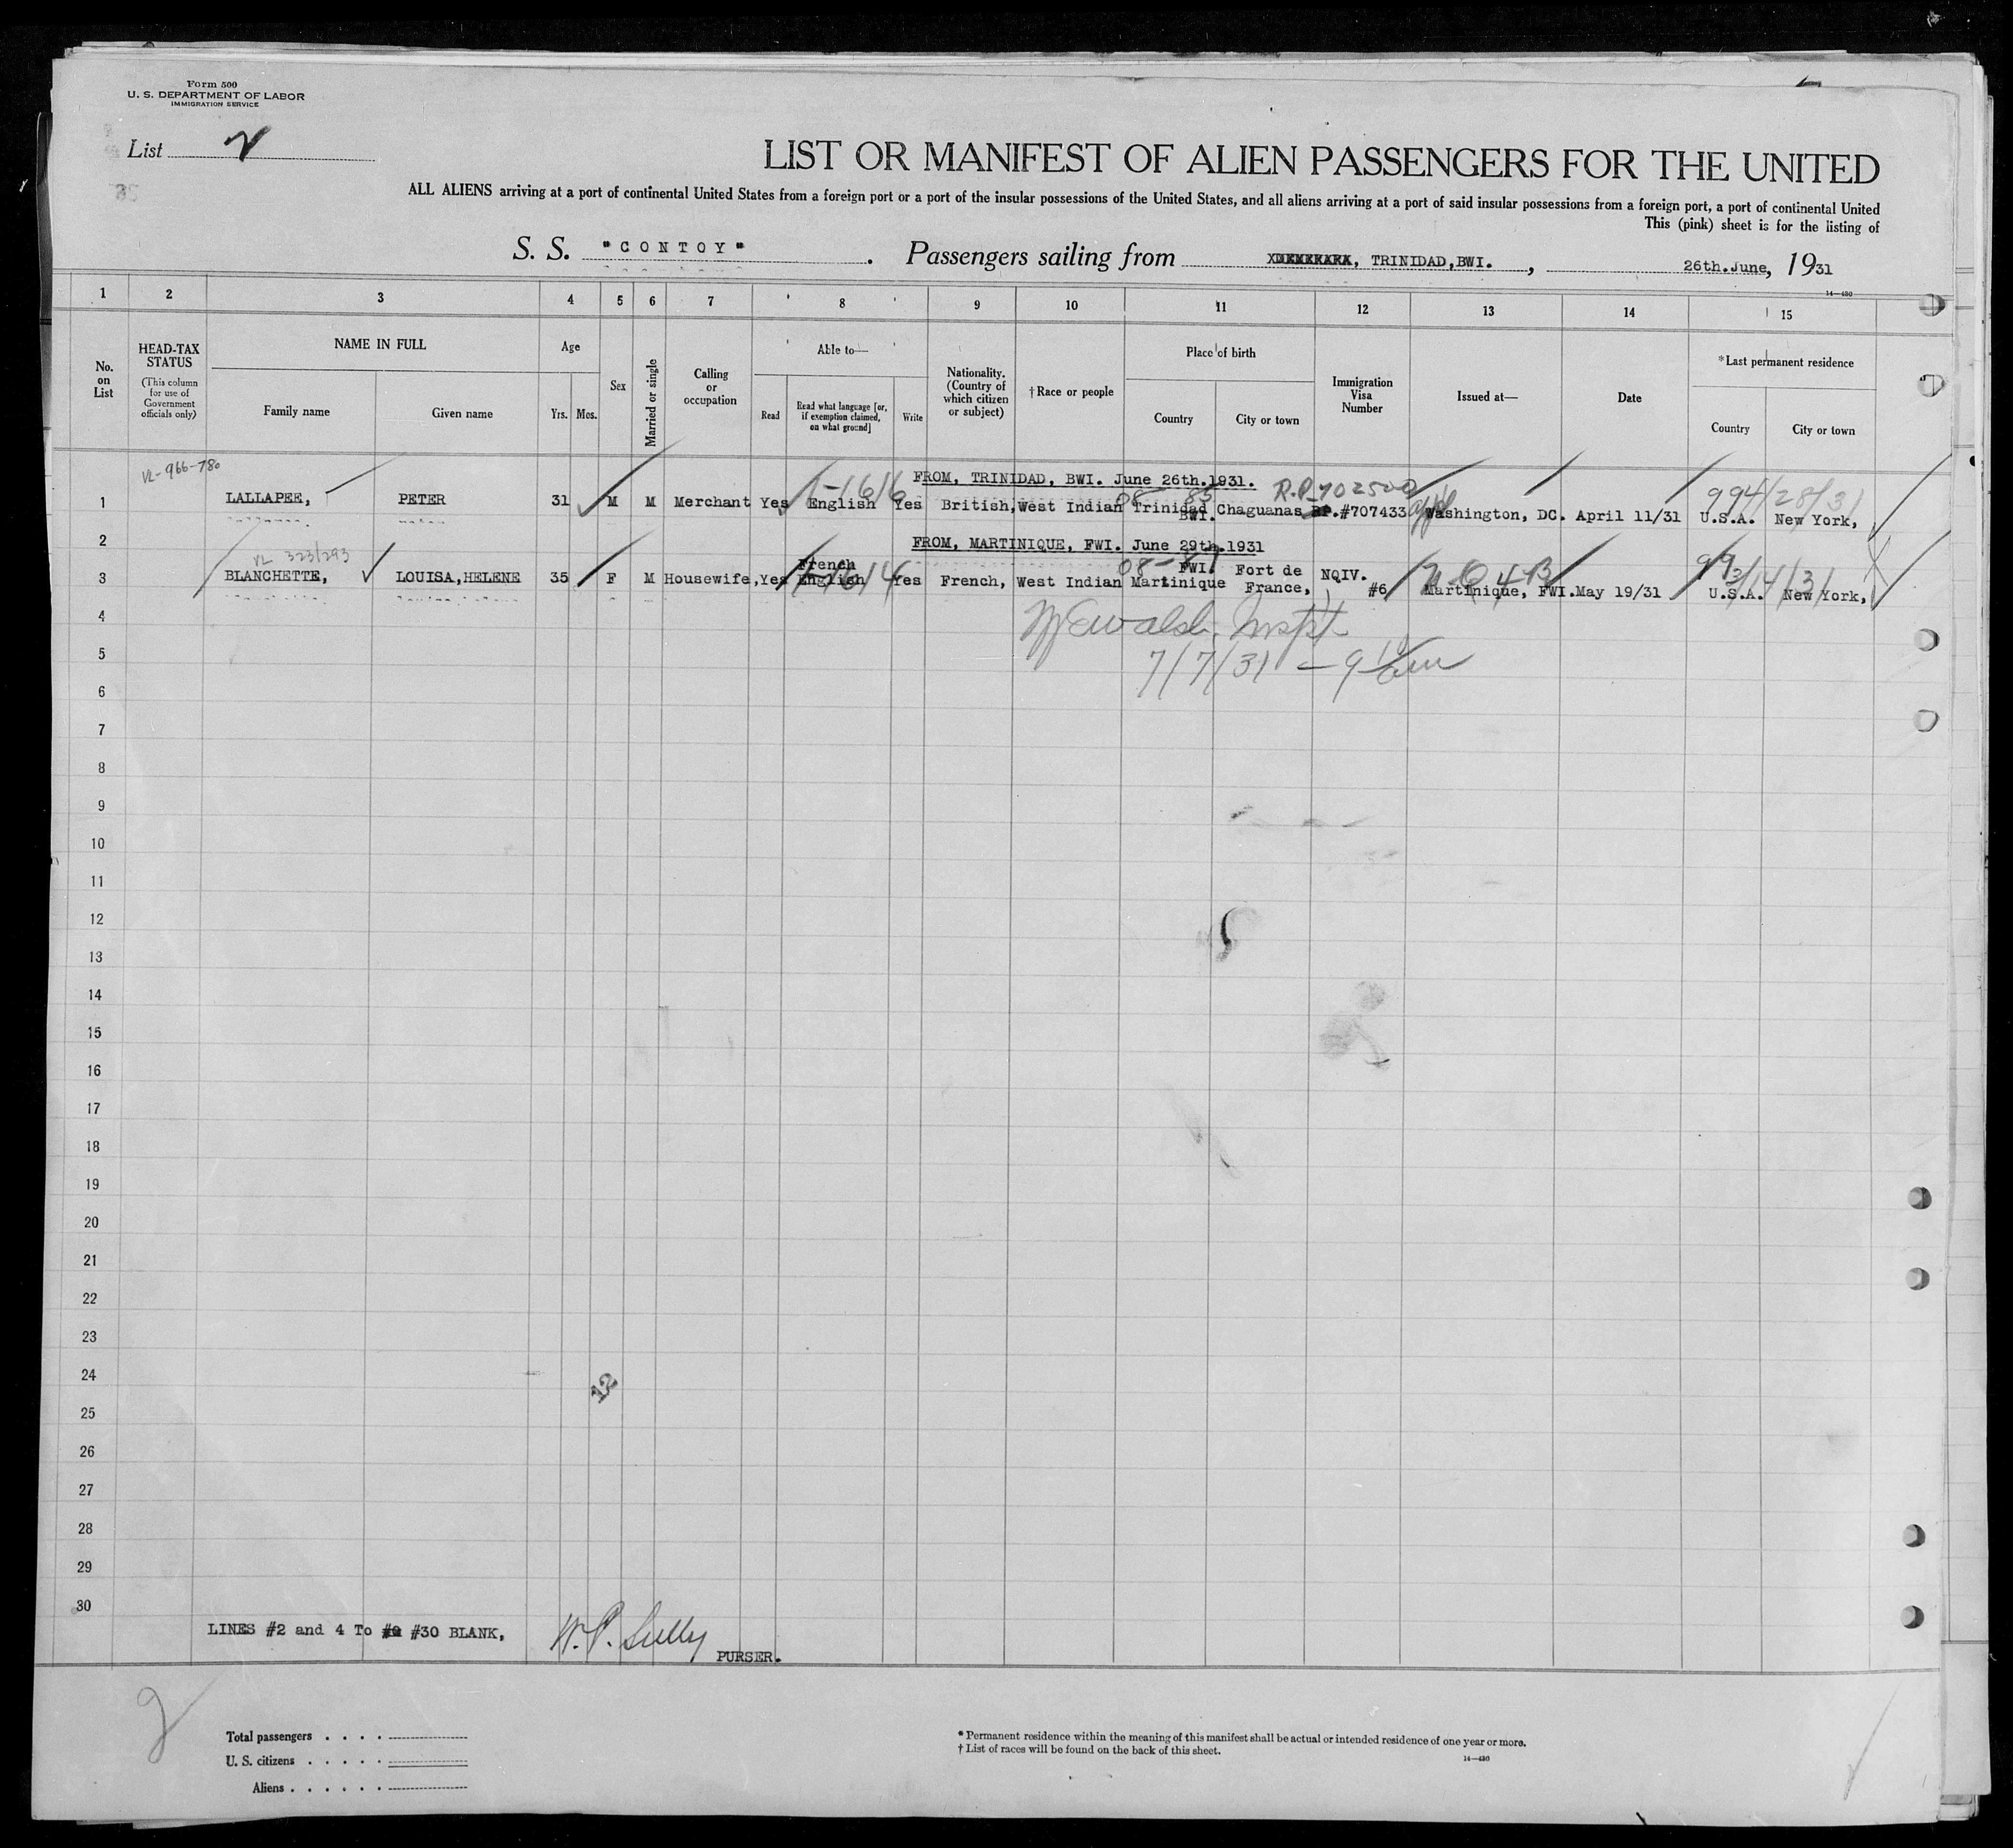 Form 500
U. S. DEPARTMENT OF LABOR
IMMIGRATION SERVICE
List 2
LIST OR MANIFEST OF ALIEN PASSENGERS FOR THE UNITED
ALL ALIENS arriving at a port of continental United States from a foreign port or a port of the insular possessions of the United States, and all aliens arriving at a port of said insular possessions from a foreign port, a port of continental United
This (pink) sheet is for the listing of
S. S. "CONTOY" . Passengers sailing from TRINIDAD,BWI. , 26th.June, 1931
14—430
1 2 3 4 5 6 7 8 9 10 11 12 13 14 15
No. on List
HEAD-TAX STATUS (This column for use of Government officials only)
NAME IN FULL
Family name Given name
Age
Yrs. Mos.
Sex
Married or single
Calling or occupation
Able to—
Read
Read what language [or, if exemption claimed, on what ground]
Write
Nationality. (Country of which citizen or subject)
†Race or people
Place of birth
Country City or town
Immigration Visa Number
Issued at—
Date
*Last permanent residence
Country City or town
FROM, TRINIDAD, BWI. June 26th.1931.
VL-966-780
R.P. 702500
994/28/31
1 LALLAPEE, PETER 31 M M Merchant Yes English Yes British, West Indian Trinidad BWI. Chaguanas RP.#707433 Washington, DC. April 11/31 U.S.A. New York,
2 FROM, MARTINIQUE, FWI. June 29th.1931
VL 323/293
3 BLANCHETTE, LOUISA,HELENE 35 F M Housewife, Yes French English Yes French, West Indian Martinique FWI. Fort de France, NQIV. #6 Martinique, FWI. May 19/31 U.S.A. New York,
4
7/7/31 — 9
5
6
7
8
9
10
11
12
13
14
15
16
17
18
19
20
21
22
23
24
12
25
26
27
28
29
30
LINES #2 and 4 To #30 BLANK,
W. P. Sully
PURSER.
2
Total passengers . . . .
U. S. citizens . . . . .
Aliens . . . . . .
* Permanent residence within the meaning of this manifest shall be actual or intended residence of one year or more.
† List of races will be found on the back of this sheet.
14—430